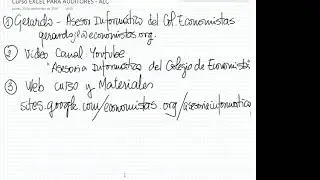 CURSO EXCEL PARA AUDITORES - ALC
① Gerardo - Asesor Informático del Col Economistas
@economistas.org.
② Video Canal Youtube
"Asesoría Informática del Colegio de Economist
③ Web curso y Materiales
sites.google.com/economistas.org/asesoriainformatica